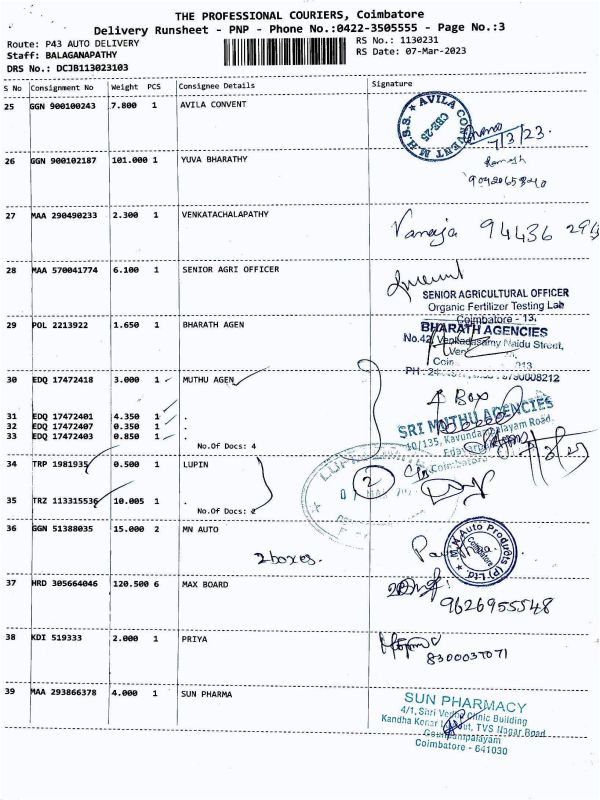 THE PROFESSIONAL COURIERS, Coimbatore
Delivery Runsheet - PNP - Phone No.:0422-3505555 - Page No.:3
Route: P43 AUTO DELIVERY
RS No.: 1130231
Staff: BALAGANAPATHY
RS Date: 07-Mar-2023
DRS No.: DCJB113023103
S No Consignment No Weight PCS Consignee Details Signature
25 GGN 900100243 7.800 1 AVILA CONVENT
AVILA CONVENT M.H.S.S.
CBE-25
7/3/23.
26 GGN 900102187 101.000 1 YUVA BHARATHY
Ramesh
27 MAA 290490233 2.300 1 VENKATACHALAPATHY
Vanaja 94436
28 MAA 570041774 6.100 1 SENIOR AGRI OFFICER
SENIOR AGRICULTURAL OFFICER
Organic Fertilizer Testing Lab
Coimbatore - 13.
29 POL 2213922 1.650 1 BHARATH AGEN
BHARATH AGENCIES
No.42, Venkadasamy Naidu Street,
30 EDQ 17472418 3.000 1 MUTHU AGEN
Box
31 EDQ 17472401 4.350 1 .
32 EDQ 17472407 0.350 1 .
33 EDQ 17472403 0.850 1 .
No.Of Docs: 4
SRI MUTHU AGENCIES
10/135, Kavundampalayam Road,
Coimbatore
34 TRP 1981935 0.500 1 LUPIN
2
35 TRZ 113315536 10.005 1 .
No.Of Docs: 2
36 GGN 51388035 15.000 2 MN AUTO
2 boxes.
M.N.Auto Products (P) Ltd.
Coimbatore
37 HRD 305664046 120.500 6 MAX BOARD
9626955548
38 KDI 519333 2.000 1 PRIYA
8300037071
39 MAA 293866378 4.000 1 SUN PHARMA
SUN PHARMACY
4/1, Shri Vedha Clinic Building
TVS Nagar Road
Coimbatore - 641030